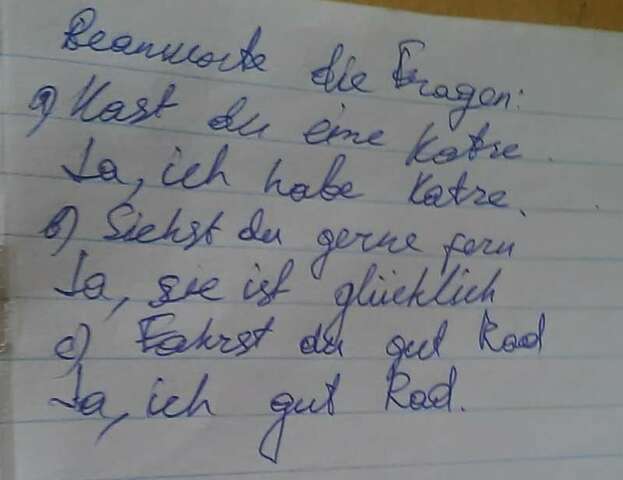 Beantworte die Fragen:
a) Hast du eine Katze.
Ja, ich habe Katze.
b) Siehst du gerne fern
Ja, sie ist glücklich
c) Fahrst du gut Rad
Ja, ich gut Rad.